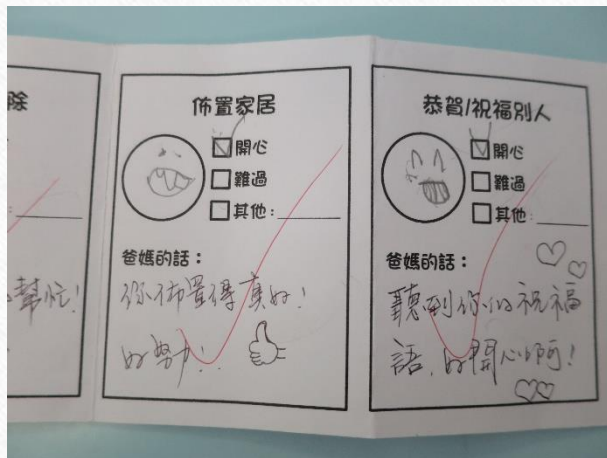 除
幫忙!
佈置家居
開心
難過
其他:
爸媽的話:
你佈置得真好!
好努力!
恭賀/祝福別人
開心
難過
其他:
爸媽的話:
聽到你的祝福
語,好開心啊!